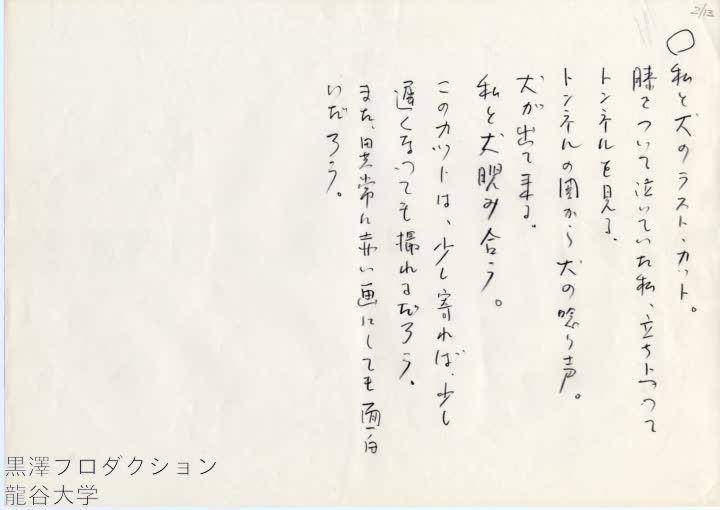 2/13
○私と犬のラスト・カット。
膝をついて泣いていた私、立ち上って
トンネルを見る、
トンネルの闇から犬の唸り声。
犬が出て来る。
私と犬睨み合う。
このカットは、少し寄れば、少し
遅くなっても撮れるだろう。
また、異常に赤い画にしても面白
いだろう。
黒澤フロダクション
龍谷大学